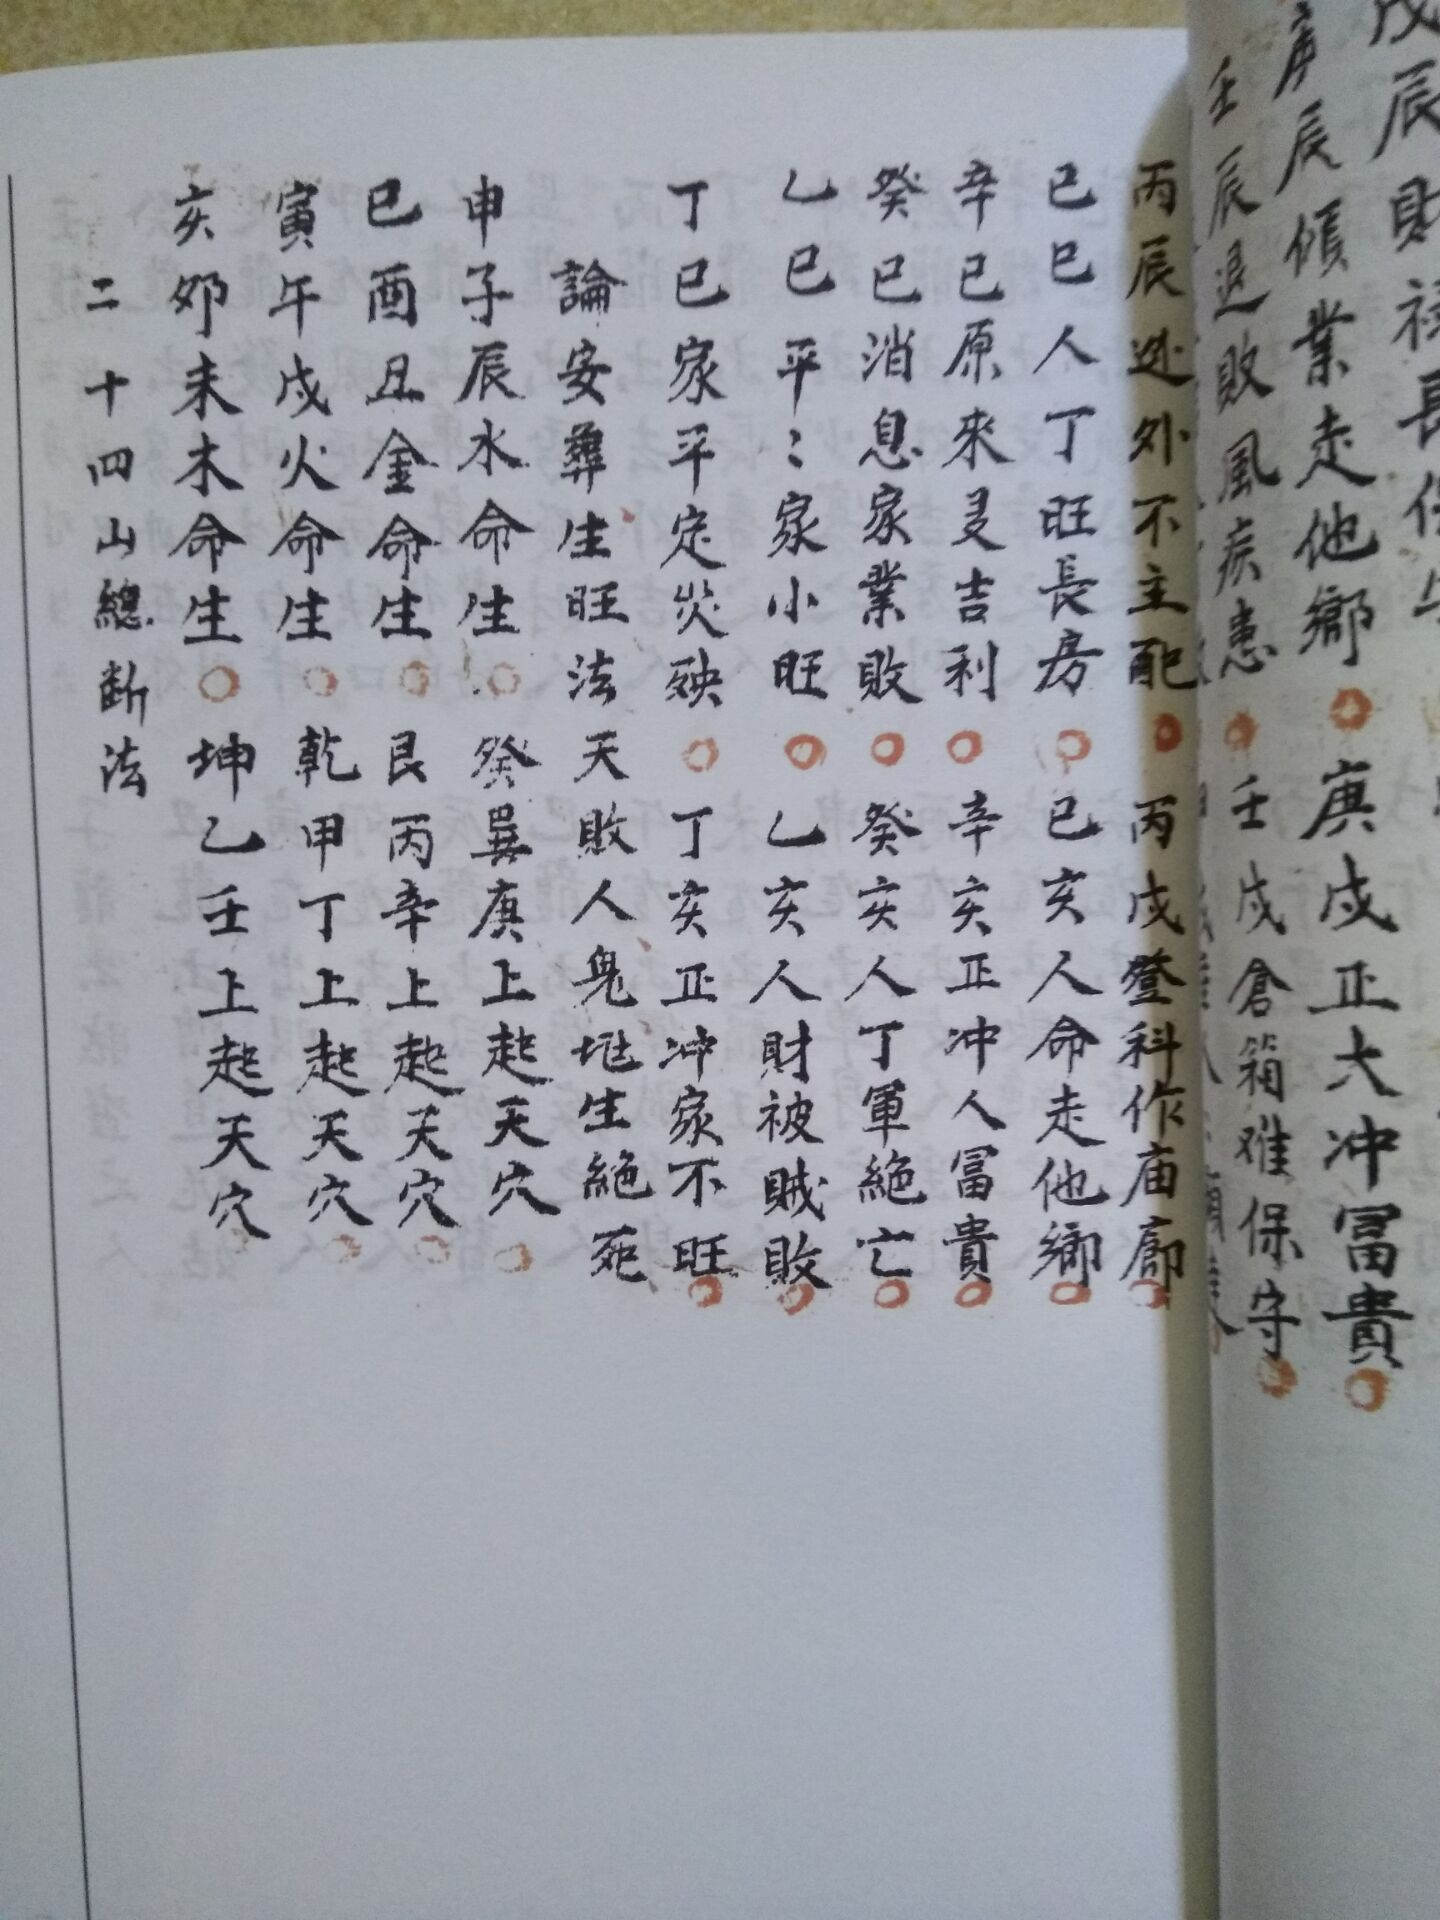 戊辰財祿長保
庚辰傾業走他鄉 庚戌正大冲冨貴
壬辰退敗風疾患 壬戌倉箱难保守
丙辰迯外不主配 丙戌登科作庙廊
己巳人丁旺長房 己亥人命走他鄉
辛巳原來叏吉利 辛亥正冲人冨貴
癸巳消息家業敗 癸亥人丁軍絕亡
乙巳平〻家小旺 乙亥人財被賊敗
丁巳家平定災殃 丁亥正冲家不旺
論安葬生旺法天敗人鬼地生絕死
申子辰水命生 癸巽庚上起天穴
巳酉丑金命生 艮丙辛上起天穴
寅午戌火命生 乾甲丁上起天穴
亥夘未木命生 坤乙壬上起天穴
二十四山總断法